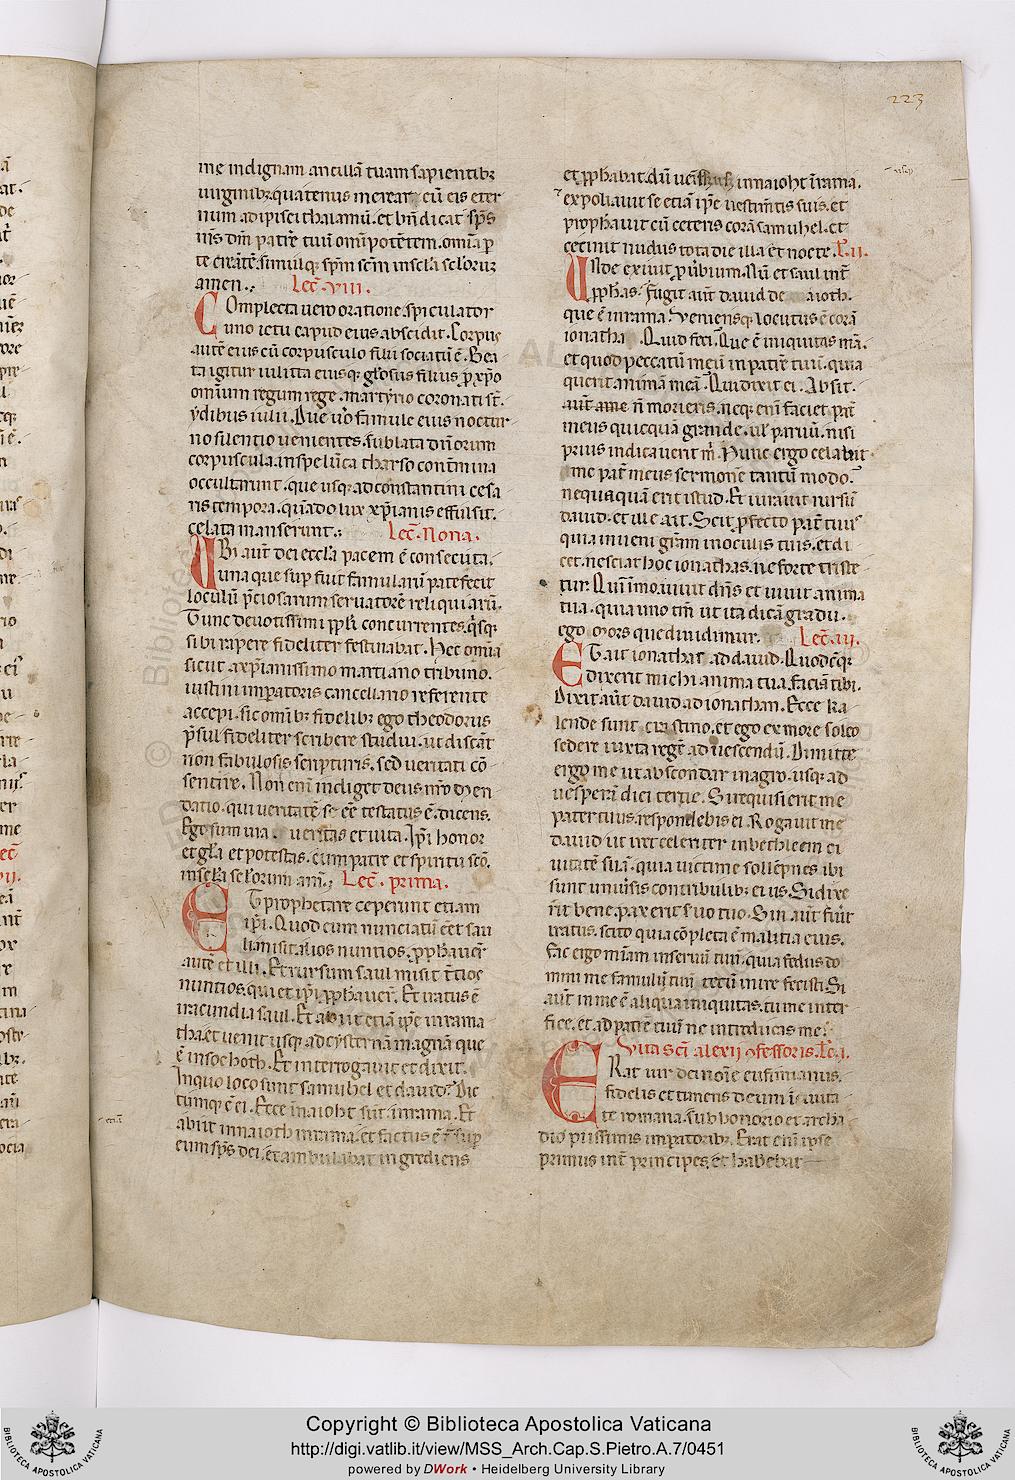 223
me indignam ancillā tuam sapientibꝫ
uirginibꝫ. quatenus merear cū eis eter
num adipisci thalamū. et bn̄dicat sp̄s
m̄s dn̄m patrē tuū om̄ipotētem. om̄ia p̱
te creātē. simulqꝫ sp̄m sc̄m in sec̄la sec̄lorum
amen. Lec̄. viii.
Complecta uero oratione spiculator
uno ictu capud eius abscidit. Corpus
autē eius cū corpusculo filii sociatū ē. Bea
ta igitur iulitta eiusqꝫ gl̄osus filius p̱ xp̄o
omnium regum rege. martyrio coronati st̄.
ydibus iulii. Due u̾o famule eius noctur
no silentio uenientes. sublata dn̄orum
corpuscula. in spelūca tharso contermina
occultarunt. que usqꝫ ad constantini cesa
ris tempora. quādo lux xp̄ianis effulsit.
celata manserunt. Lec̄. Nona.
Ubi aut̄ dei eccl̄a pacem ē consecuta.
una que sup̱fuit famularū patefecit
loculū p̄ciosarum seruatorē reliquiarū.
Tunc deuotissimi pp̄li concurrentes. q̄sqꝫ
sibi rapere fideliter festinabat. Hec om̄ia
sicut a xp̄ianissimo martiano tribuno.
iustini imp̱atoris cancellario referente
accepi. sic om̄ibꝫ fidelibꝫ ego theodorus
p̄sul fideliter scribere studui. ut discāt
non fabulosis scripturis. sed ueritati cō
sentire. Non eni̅ indiget deus nr̄o men
datio. qui ueritatē se ēē testatus ē. dicens.
Ego sum uia. ueritas et uita. Ip̄i honor
et gl̄a et potestas. cum patre et spiritu sc̄o.
in sec̄la sec̄lorum am̄. Lec̄. prima.
Et prophetare ceperunt etiam
ip̄i. Quod cum nunciatū eēt sau
li. misit alios nuntios. pp̱hauer̄
autē et illi. Et rursum saul misit t̄tios
nuntios. qui et ip̄i pp̱hauer̄. Et iratus ē
iracundia saul. Et abiit etiā ip̄e in rama
tha. et uenit usqꝫ ad cysternā magnā que
ē in sochoth. Et interrogauit et dixit.
In quo loco sunt samuhel et dauid? Dic
tumqꝫ ē ei. Ecce inaioht sūt in rama. Et
abiit in naioth in rama. et factus ē sup̱
eum sp̄s dei. et ambulabat ingrediens
etiā
et pp̱habat. dū ueniss& in naioht in rama.
expoliauit se etiā ip̄e uestim̄tis suis. et
prophauit cū ceteris corā samuhel. et
cecinit nudus tota die illa et nocte. L̄. ii.
Unde exiuit p̱uerbium. Nū et saul int̄
pp̱has. Fugit aut̄ dauid de naioth.
que ē in rama. Veniensqꝫ locutus ē corā
ionatha. Quid feci? Que ē iniquitas mā.
et quod peccatū meū in patrē tuū. quia
querit animā meā? Qui dixit ei. Absit.
Hunc ergo celabit
me pat̄ meus sermonē tantū modo?
nequaquā erit istud. Et iurauit rursū
dauid. et ille ait. Scit p̱fecto pat̄ tuus
quia inueni gr̄am in oculis tuis. et di
cet. nesciat hoc ionathas. ne forte triste
tur. Quin̄imo. uiuit dn̄s et uiuit anima
tua. quia uno tm̄ ut ita dicā gradu.
ego morsque diuidimur. Lec̄. iii.
Et ait ionathas ad dauid. Quodcūqꝫ
dixerit michi anima tua. faciā tibi.
Dixit aut̄ dauid ad ionathan. Ecce ka
lende sunt crastino. et ego ex more soleo
sedere iuxta regē ad uescendū. Dimitte
ergo me ut abscondar in agro. usqꝫ ad
uesperā diei tertie. Si requisierit me
pater tuus. respondebis ei. Rogauit me
dauid ut iret celeriter in bethleem ci
uitatē suā. quia uictime sollēpnes ibi
sunt uniu̾sis contribulibꝫ eius. Si dixe
rit bene. pax erit s̾uo tuo. Sin aut̄ fu̾it
iratus. scito quia cōpleta ē malitia eius.
Fac ergo mīam in seruū tuū. quia fedus do
mini me famulū tuū tecū inire fecisti. Si
aut̄ in me ē aliqua iniquitas. tu me inter
fice. et ad patrē tuū ne introducas me.
Vita sc̄i alexii ꝯfessoris. Lc̄. i.
Erat uir dei noīe eufimianus.
fidelis et timens deum i ciuita
te romana. sub honorio et archa
dio piissimis imp̱atoribꝫ. Erat eni̅ ip̄se
primus int̄ principes. et habebat
Copyright © Biblioteca Apostolica Vaticana
http://digi.vatlib.it/view/MSS_Arch.Cap.S.Pietro.A.7/0451
powered by DWork • Heidelberg University Library
BIBLIOTECA APOSTOLICA VATICANA
BIBLIOTECA APOSTOLICA VATICANA